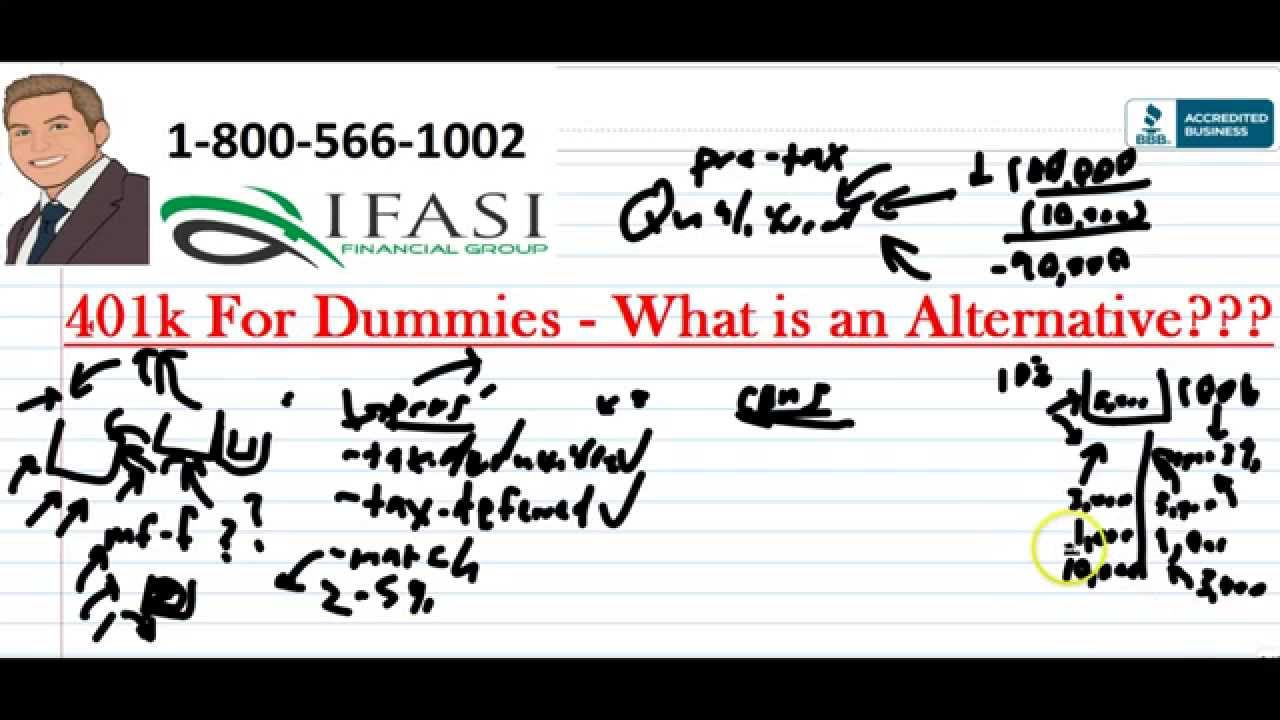 1-800-566-1002
IFASI
FINANCIAL GROUP
BBB.
ACCREDITED
BUSINESS
pre-tax
100,000
(10,000)
-90,000
401k For Dummies - What is an Alternative???
pros
cons
-tax-deferred
-match
2-5%
mf-f ? ?
3%
3,000
5,000
1,000
1,000
10,000
3,000